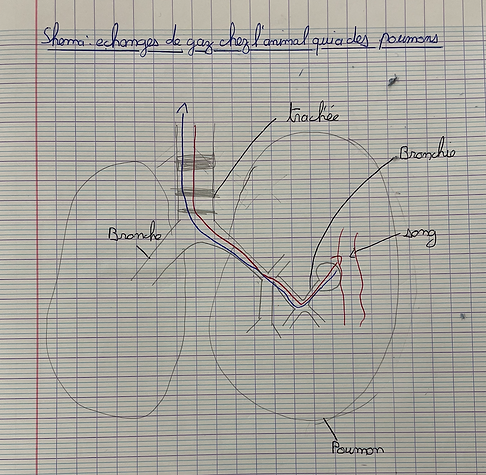 Shema : echanges de gaz chez l'animal qui a des poumons
trachée
Bronchie
Bronche
song
Poumon